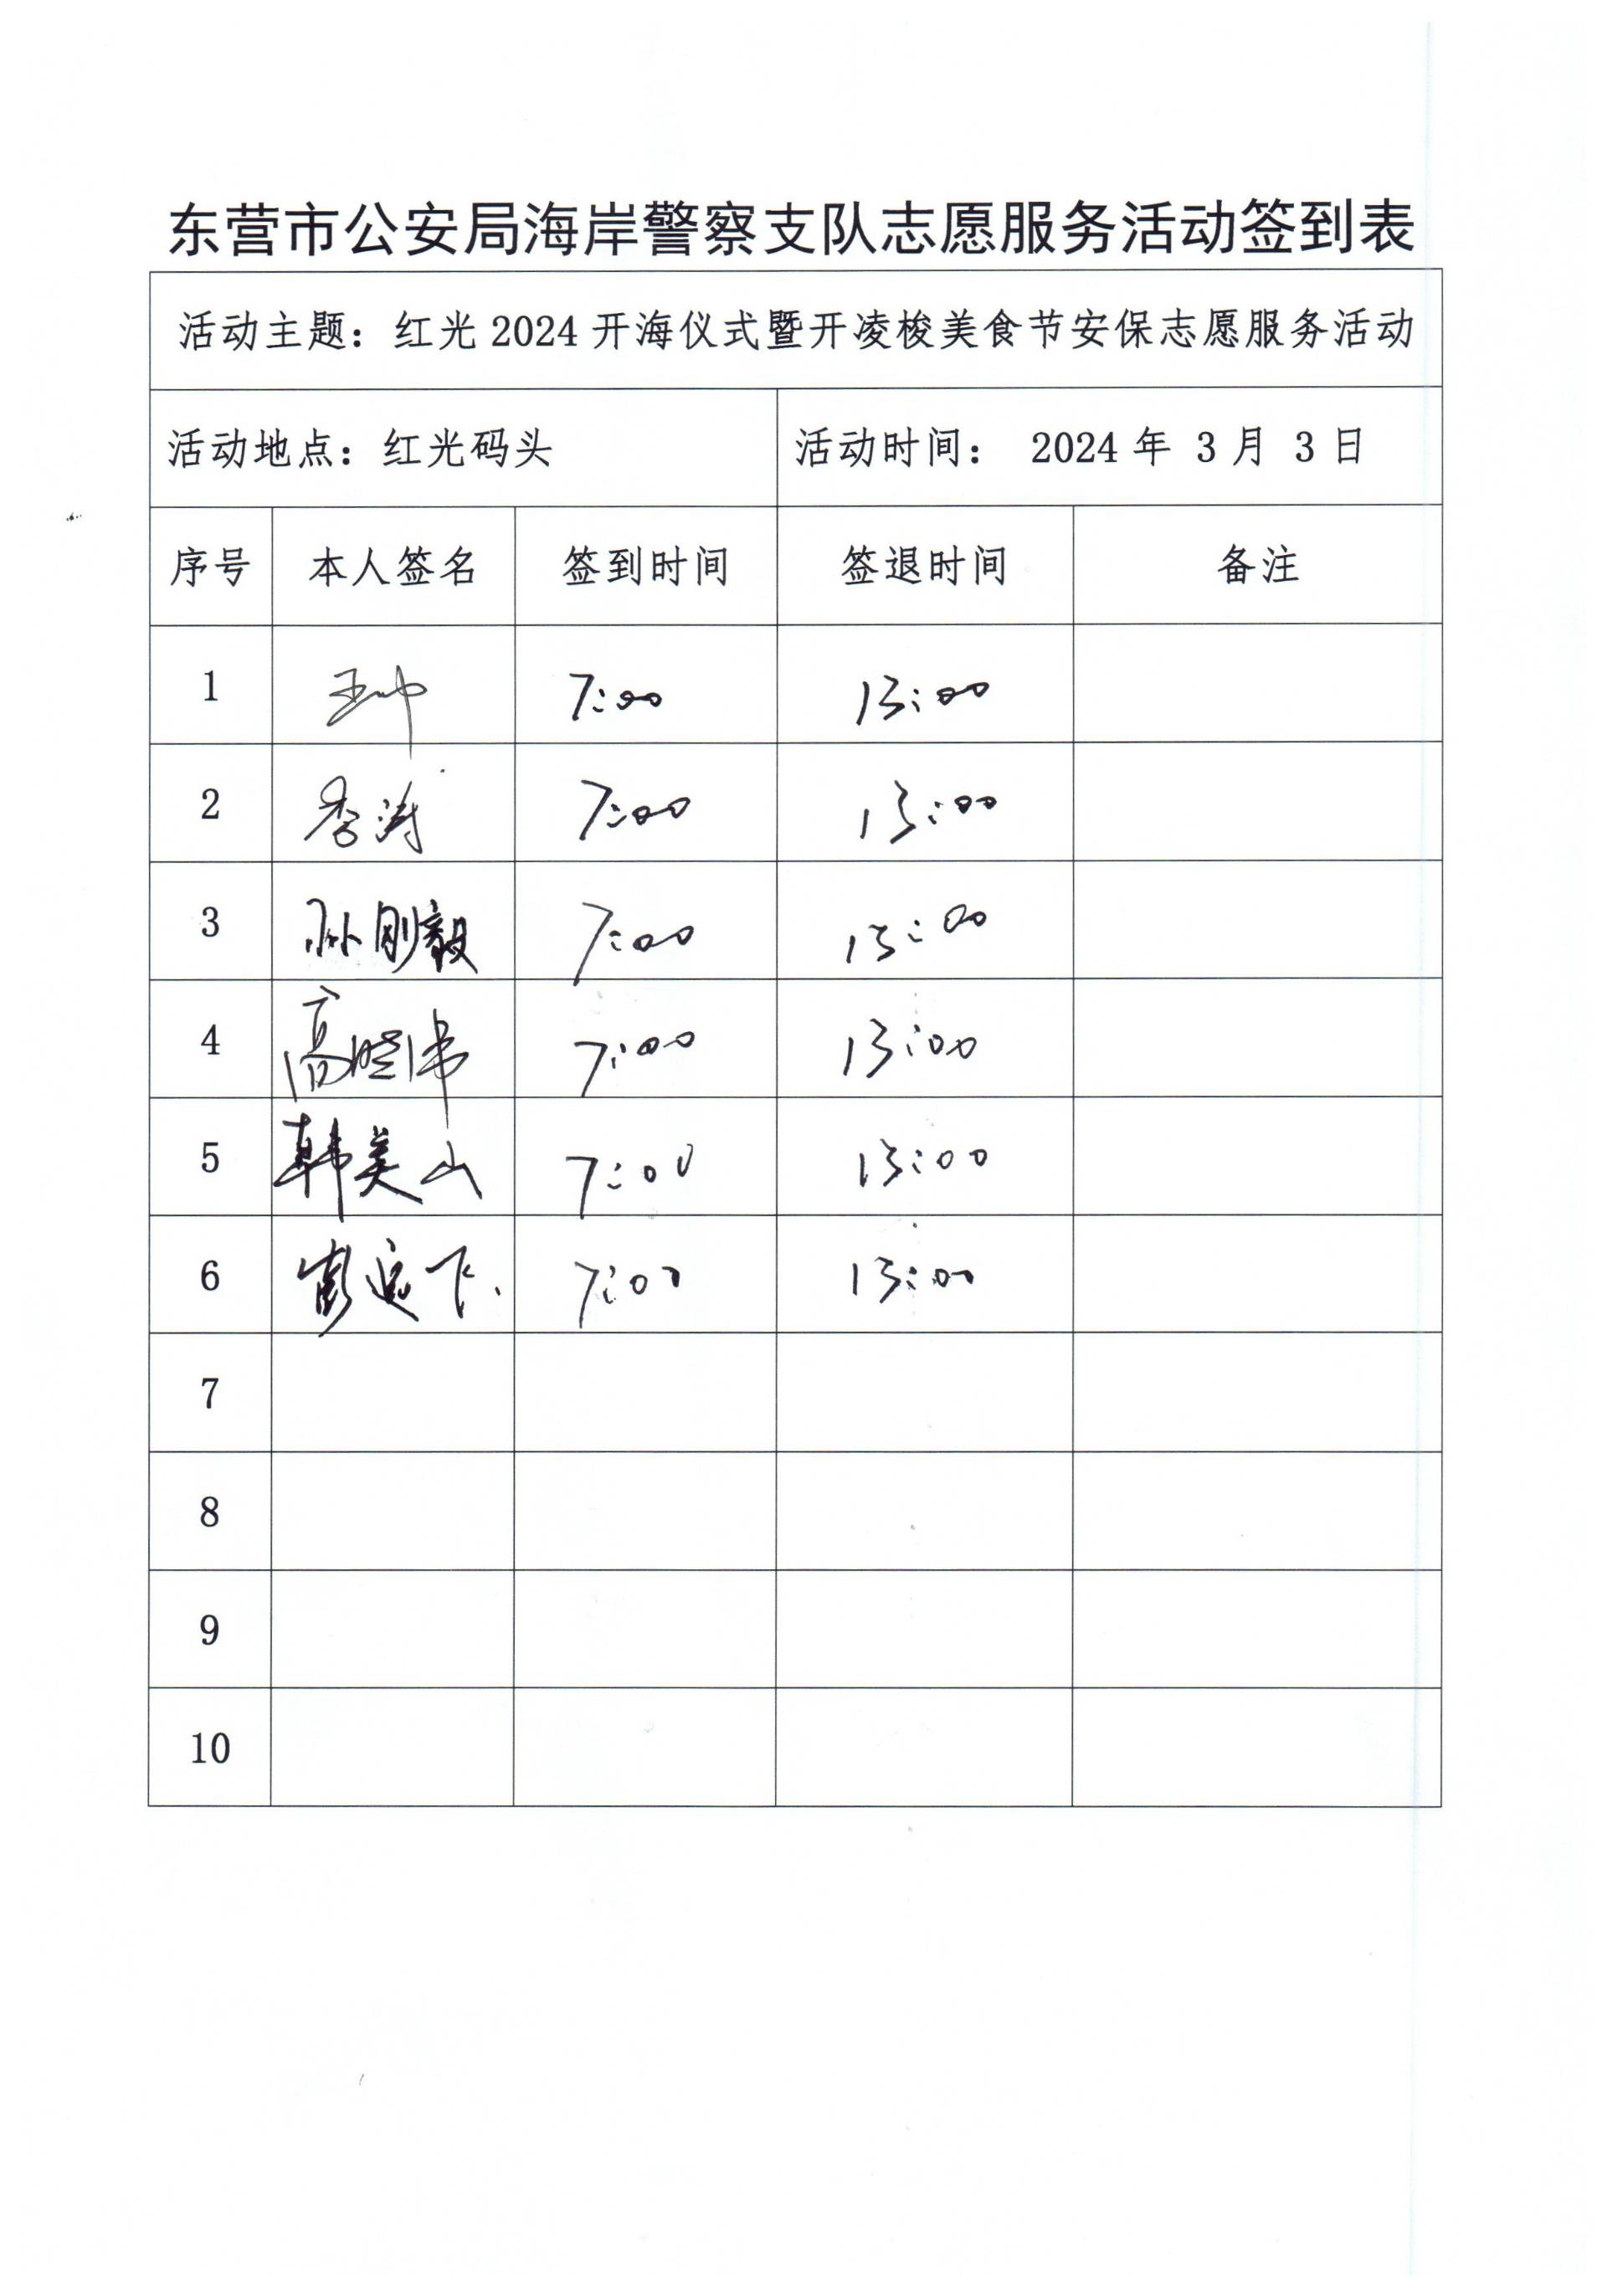 东营市公安局海岸警察支队志愿服务活动签到表
活动主题：红光 2024 开海仪式暨开凌梭美食节安保志愿服务活动
活动地点：红光码头 活动时间： 2024 年 3 月 3 日
序号 本人签名 签到时间 签退时间 备注
1 7:00 13:00
2 李涛 7:00 13:00
3 孙刚毅 7:00 13:00
4 高晓伟 7:00 13:00
5 韩美山 7:00 13:00
6 彭远飞 7:00 13:00
7
8
9
10